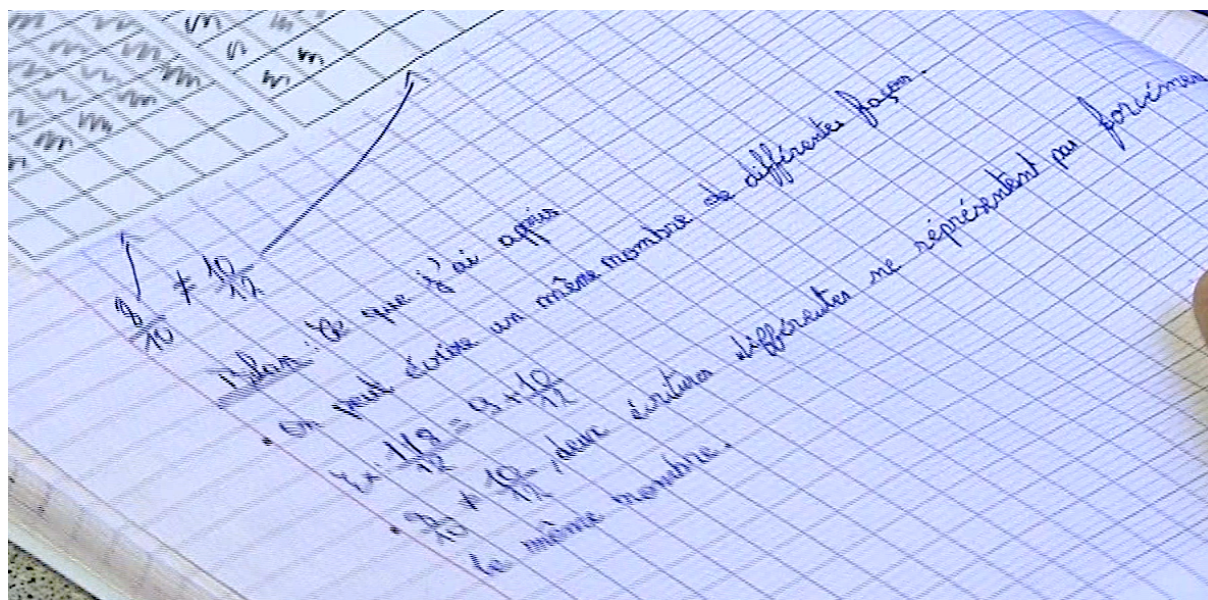 8/10 ≠ 10/12
Bilan : Ce que j'ai appris
• On peut écrire un même nombre de différentes façon.
Ex: 118/12 = 9 + 10/12
• 8/10 ≠ 10/12, deux écritures différentes ne réprésentent pas forcémen
le même nombre.